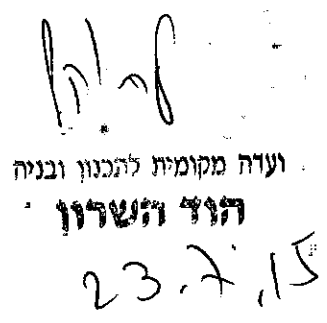 ועדה מקומית לתכנון ובניה
הוד השרון
23.7.15